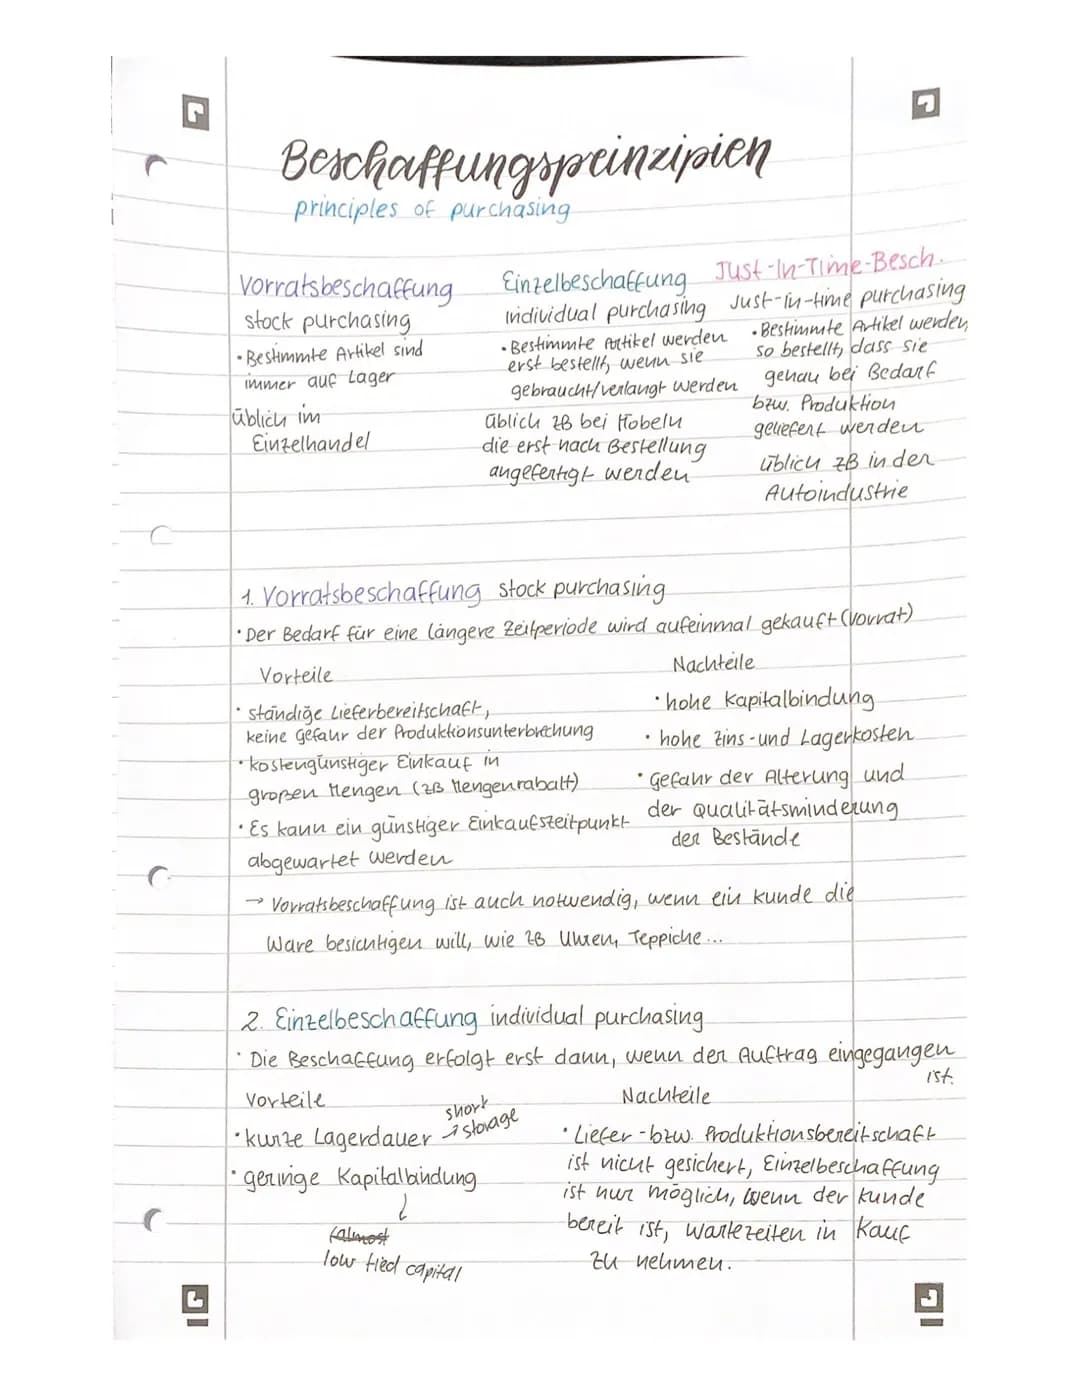 Beschaffungsprinzipien
principles of purchasing
Vorratsbeschaffung
stock purchasing
• Bestimmte Artikel sind
immer auf Lager
üblich im
Einzelhandel
Einzelbeschaffung
individual purchasing
• Bestimmte Artikel werden
erst bestellt, wenn sie
gebraucht/verlangt werden
üblich zB bei Möbeln
die erst nach Bestellung
angefertigt werden
Just-In-Time-Besch.
Just-in-time purchasing
• Bestimmte Artikel werden
so bestellt, dass sie
genau bei Bedarf
bzw. Produktion
geliefert werden
üblich zB in der
Autoindustrie
1. Vorratsbeschaffung stock purchasing
• Der Bedarf für eine längere Zeitperiode wird aufeinmal gekauft (Vorrat)
Vorteile
• ständige Lieferbereitschaft,
keine Gefahr der Produktionsunterbrechung
• kostengünstiger Einkauf in
großen Mengen (zB Mengenrabatt)
• Es kann ein günstiger Einkaufszeitpunkt
abgewartet werden
Nachteile
• hohe Kapitalbindung
• hohe Zins- und Lagerkosten
• Gefahr der Alterung und
der Qualitätsminderung
der Bestände
→ Vorratsbeschaffung ist auch notwendig, wenn ein Kunde die
Ware besichtigen will, wie zB Uhren, Teppiche...
2. Einzelbeschaffung individual purchasing
• Die Beschaffung erfolgt erst dann, wenn der Auftrag eingegangen
ist.
Vorteile
• kurze Lagerdauer → short
storage
• geringe Kapitalbindung
(almost
low tied capital
Nachteile
• Liefer- bzw. Produktionsbereitschaft
ist nicht gesichert, Einzelbeschaffung
ist nur möglich, wenn der Kunde
bereit ist, Wartezeiten in Kauf
zu nehmen.